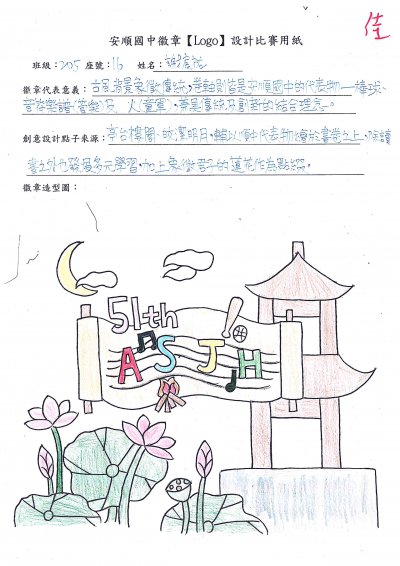 安順國中徽章【Logo】設計比賽用紙
佳
班級：205 座號：16 姓名：
徽章代表意義：古風背景象徵傳統，卷軸則皆是安順國中的代表物—棒球、
管弦樂譜(管樂)及 火(童軍)，兼是傳統及創新的結合理念。
創意設計點子來源：亭台樓閣、皎潔明月，輔以順中代表物繪於書卷之上，除讀
書之外也發展多元學習，加上象徵君子的蓮花作為點綴。
徽章造型圖：
51th
A S J H